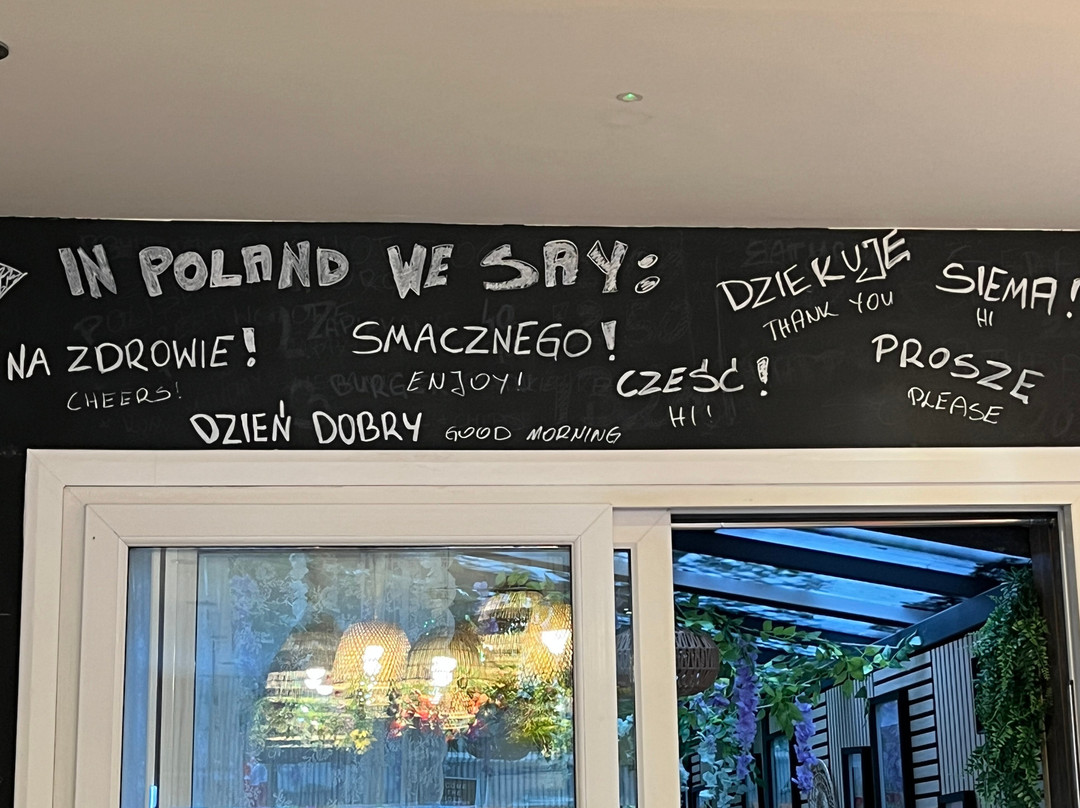 IN POLAND WE SAY:
NA ZDROWIE!
CHEERS!
SMACZNEGO!
ENJOY!
DZIEŃ DOBRY GOOD MORNING
CZEŚĆ!
HI!
DZIEKUJĘ
THANK YOU
SIEMA!
HI
PROSZĘ
PLEASE